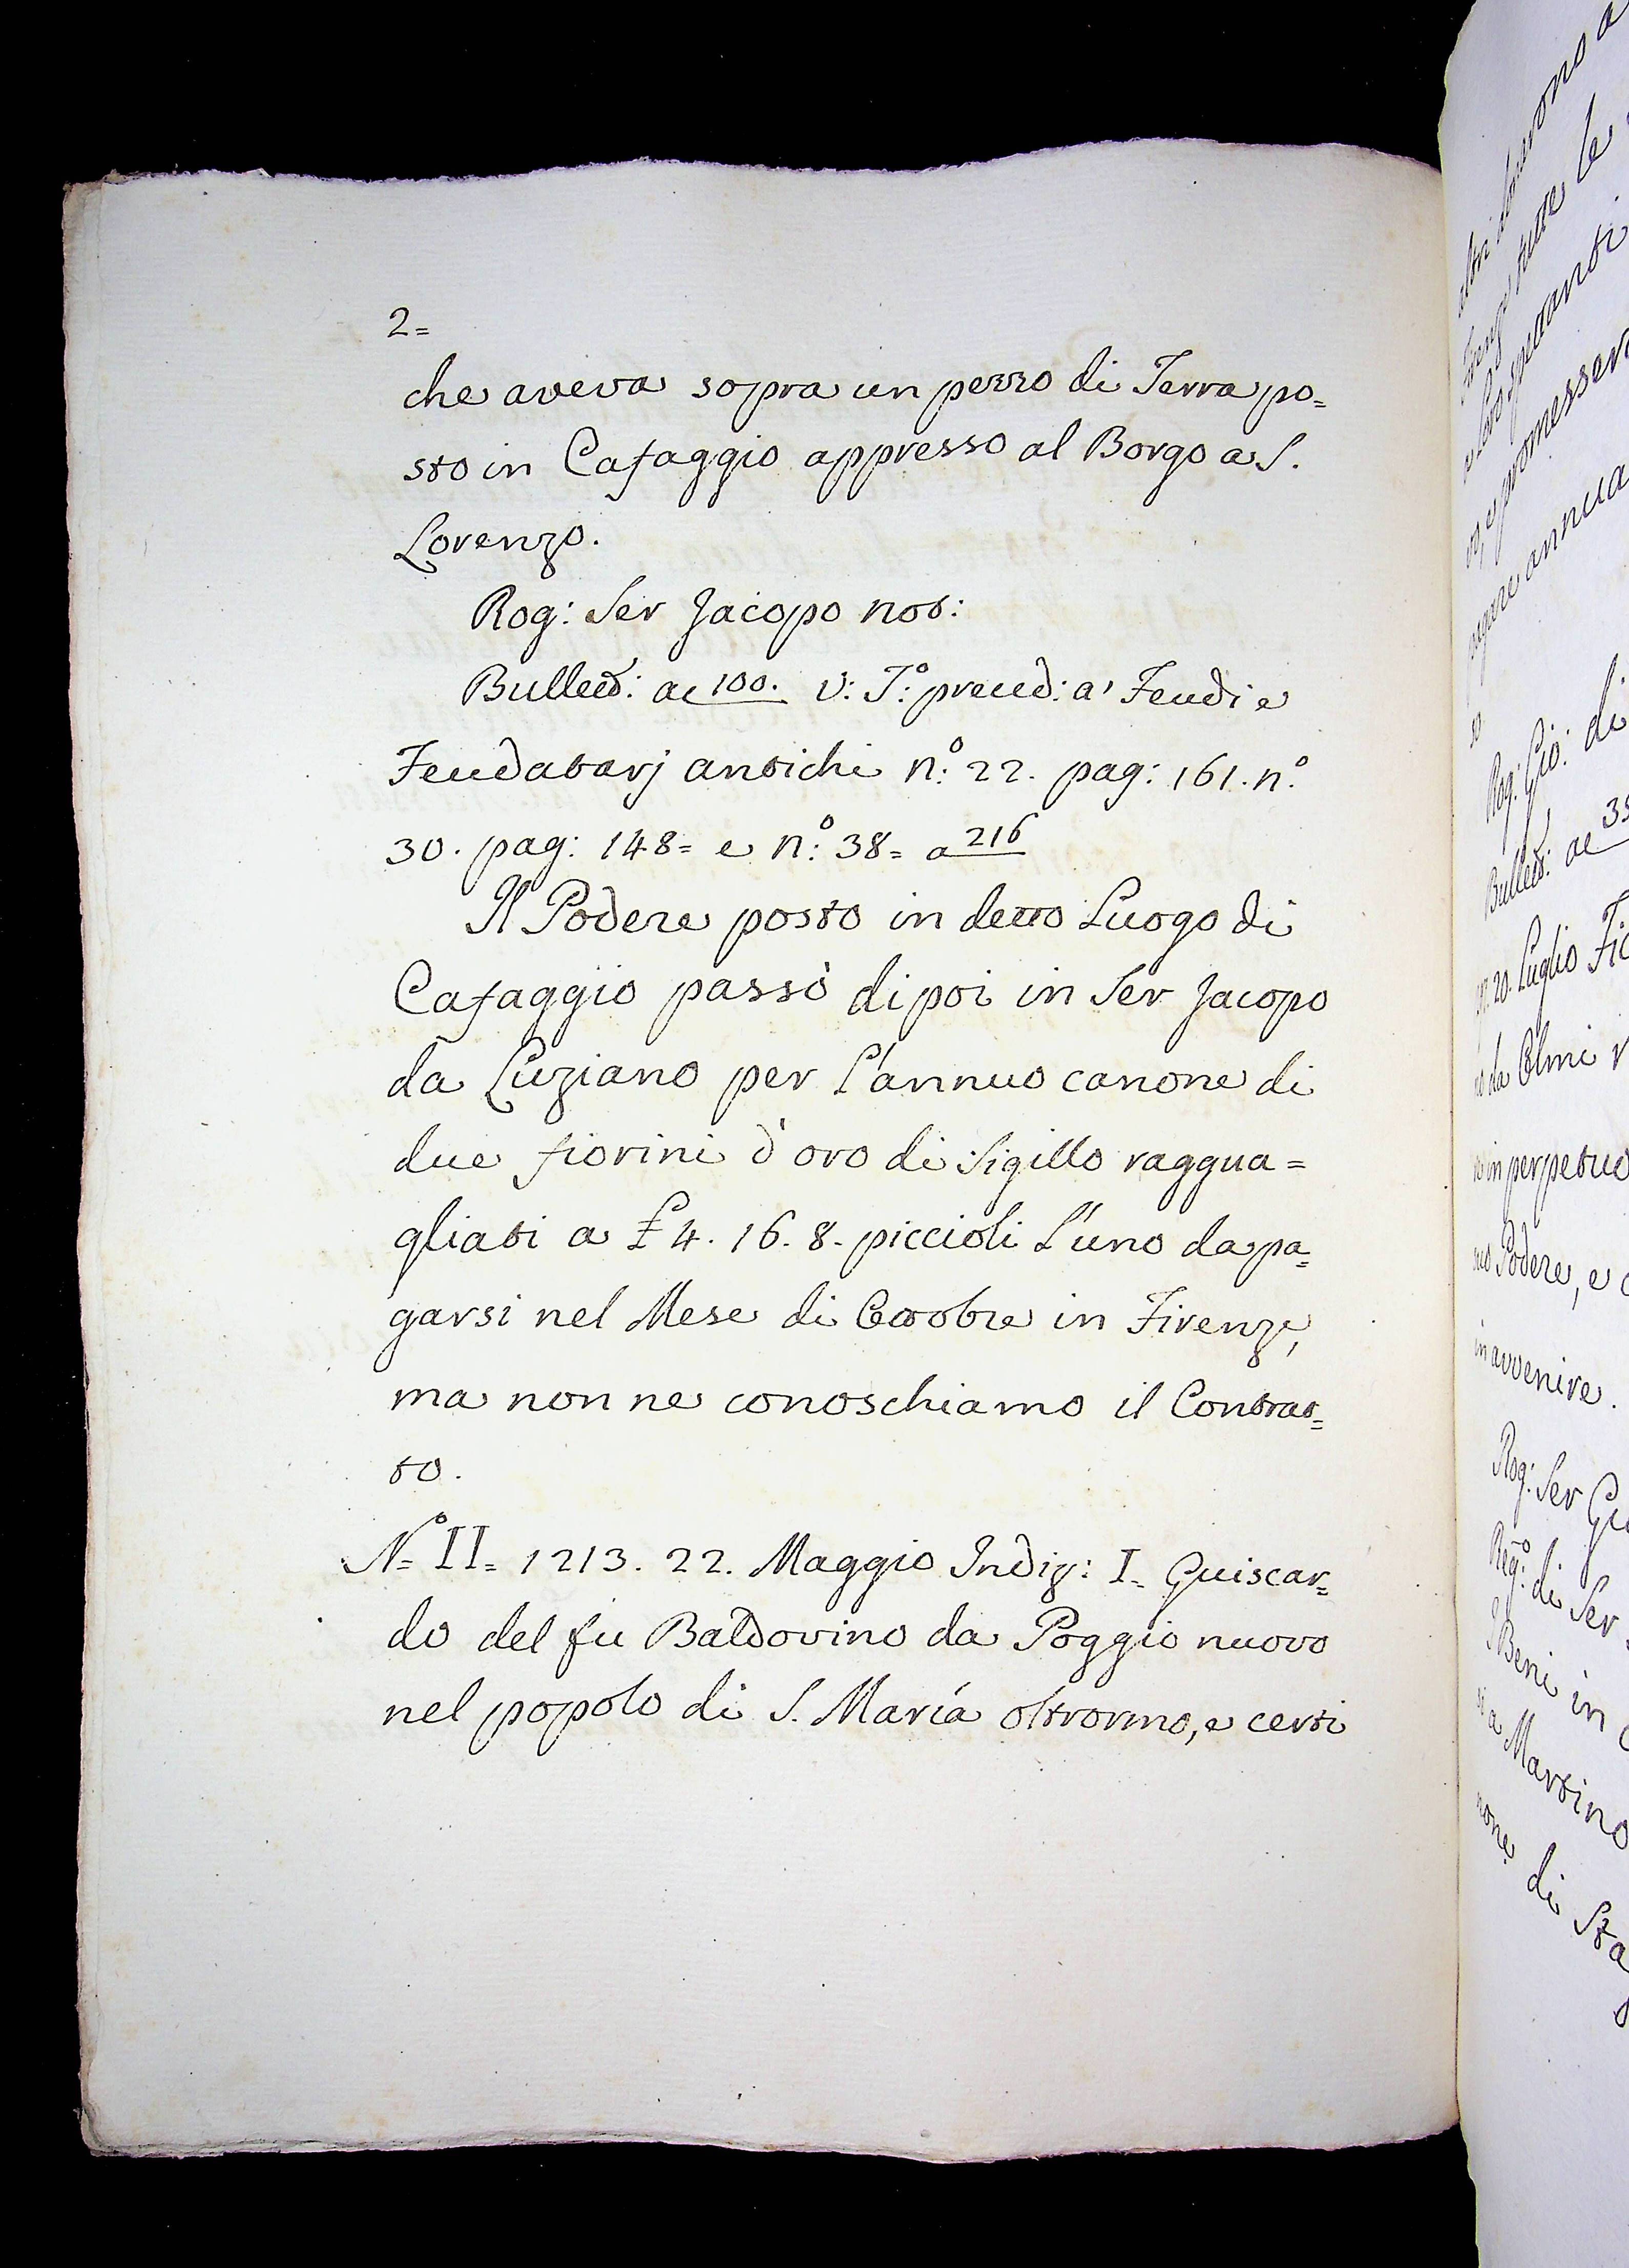 2=
che aveva sopra un pezzo di Terra po=
sto in Cafaggio appresso al Borgo a S.
Lorenzo.
Rog: Ser Jacopo not:
Bullett: a 100. V: T.º preced: a' Feudi e
Feudatarj antichi n.º 22. pag: 161. n.º
30. pag: 148= e n.º 38= a 216
Il Podere posto in detto Luogo di
Cafaggio passò dipoi in Ser Jacopo
da Luziano per l'annuo canone di
due fiorini d'oro di Sigillo raggua=
gliati a £ 4. 16. 8. piccioli l'uno da pa=
garsi nel Mese di Ottobre in Firenze,
ma non ne conoschiamo il Contrat=
to.
Nº II= 1213. 22. Maggio Indiz: I. Guiscar=
do del fu Baldovino da Poggio nuovo
nel popolo di S. Maria oltrormo, e certi
altri
tutte le
spettanti
e promessero
annua
Rog: Gio: di
Bullett: a 
20. Luglio
da Olmi
in perpetuo
Podere, e
in avvenire.
Rog: Ser
Reg.º di Ser
Beni in
a Martino
di